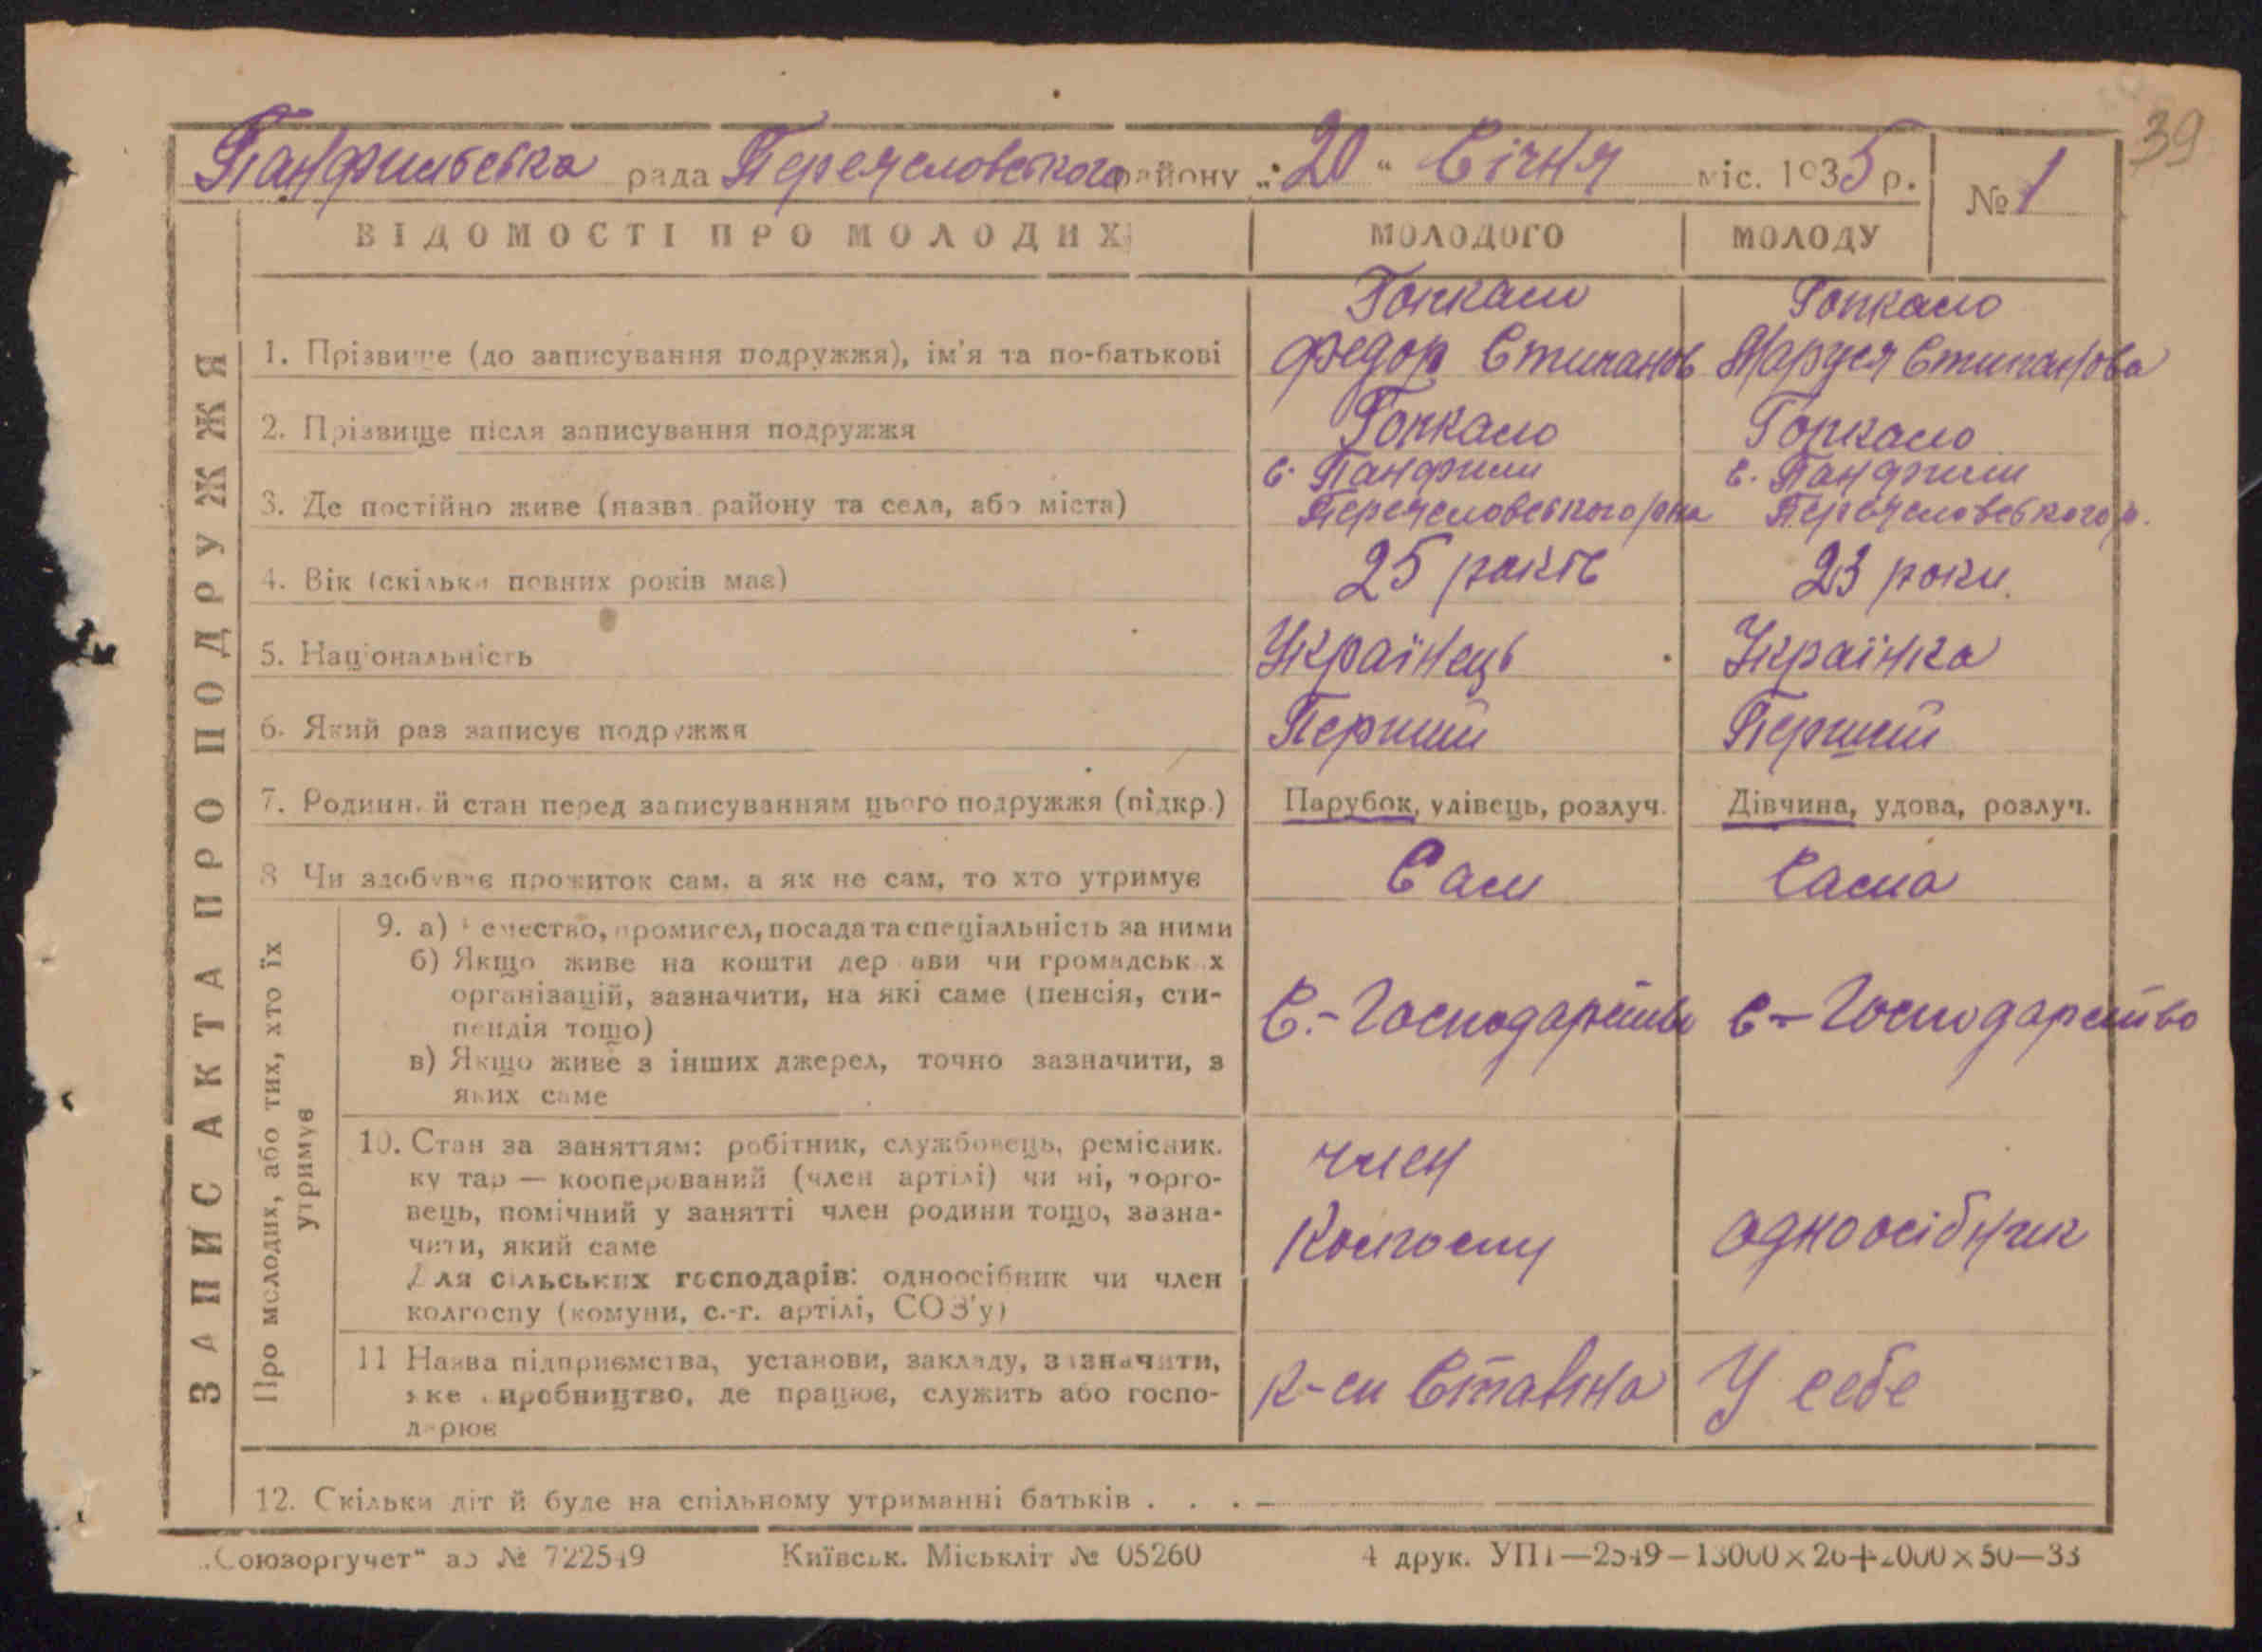 39
Панфильська рада Переяславського району „20“ Січня міс. 1935 р. № 1
ВІДОМОСТІ ПРО МОЛОДИХ МОЛОДОГО МОЛОДУ
ЗАПИС АКТА ПРО ПОДРУЖЖЯ
Гопкало Гопкало
1. Прізвище (до записування подружжя), ім'я та по-батькові Федор Стипанов Маруся Стипанова
2. Прізвище після записування подружжя Гопкало Гопкало
с. Панфили с. Панфили
3. Де постійно живе (назва району та села, або міста) Переясловського р-на Переясловського р.
4. Вік (скільки повних років має) 25 років 23 роки.
5. Національність Українець Українка
6. Який раз записує подружжя Перший Перший
7. Родинний стан перед записуванням цього подружжя (підкр.) Парубок, удівець, розлуч. Дівчина, удова, розлуч.
8 Чи здобуває прожиток сам, а як не сам, то хто утримує Сам Сама
Про молодих, або тих, хто їх утримує
9. а) Ремество, промисел, посада та спеціальність за ними
б) Якщо живе на кошти держави чи громадських
організацій, зазначити, на які саме (пенсія, сти-
пендія тощо) С.-Господарство С-Господарство
в) Якщо живе з інших джерел, точно зазначити, з
яких саме
10. Стан за заняттям: робітник, службовець, ремісник.
кустар — кооперований (член артілі) чи ні, торго-
вець, помічний у занятті член родини тощо, зазна-
чити, який саме
Для сільських господарів: одноосібник чи член
колгоспу (комуни, с.-г. артілі, СОЗ'у)
член
Колгоспу одноосібник
11 Назва підприємства, установи, закладу, зазначити,
яке виробництво, де працює, служить або госпо-
дарює
к-сп Сталіна У себе
12. Скільки дітей буде на спільному утриманні батьків . . . —
„Союзоргучет“ зо № 722549 Київськ. Міськліт № 05260 4 друк. УПП—2549—13000×26+2000×50—33